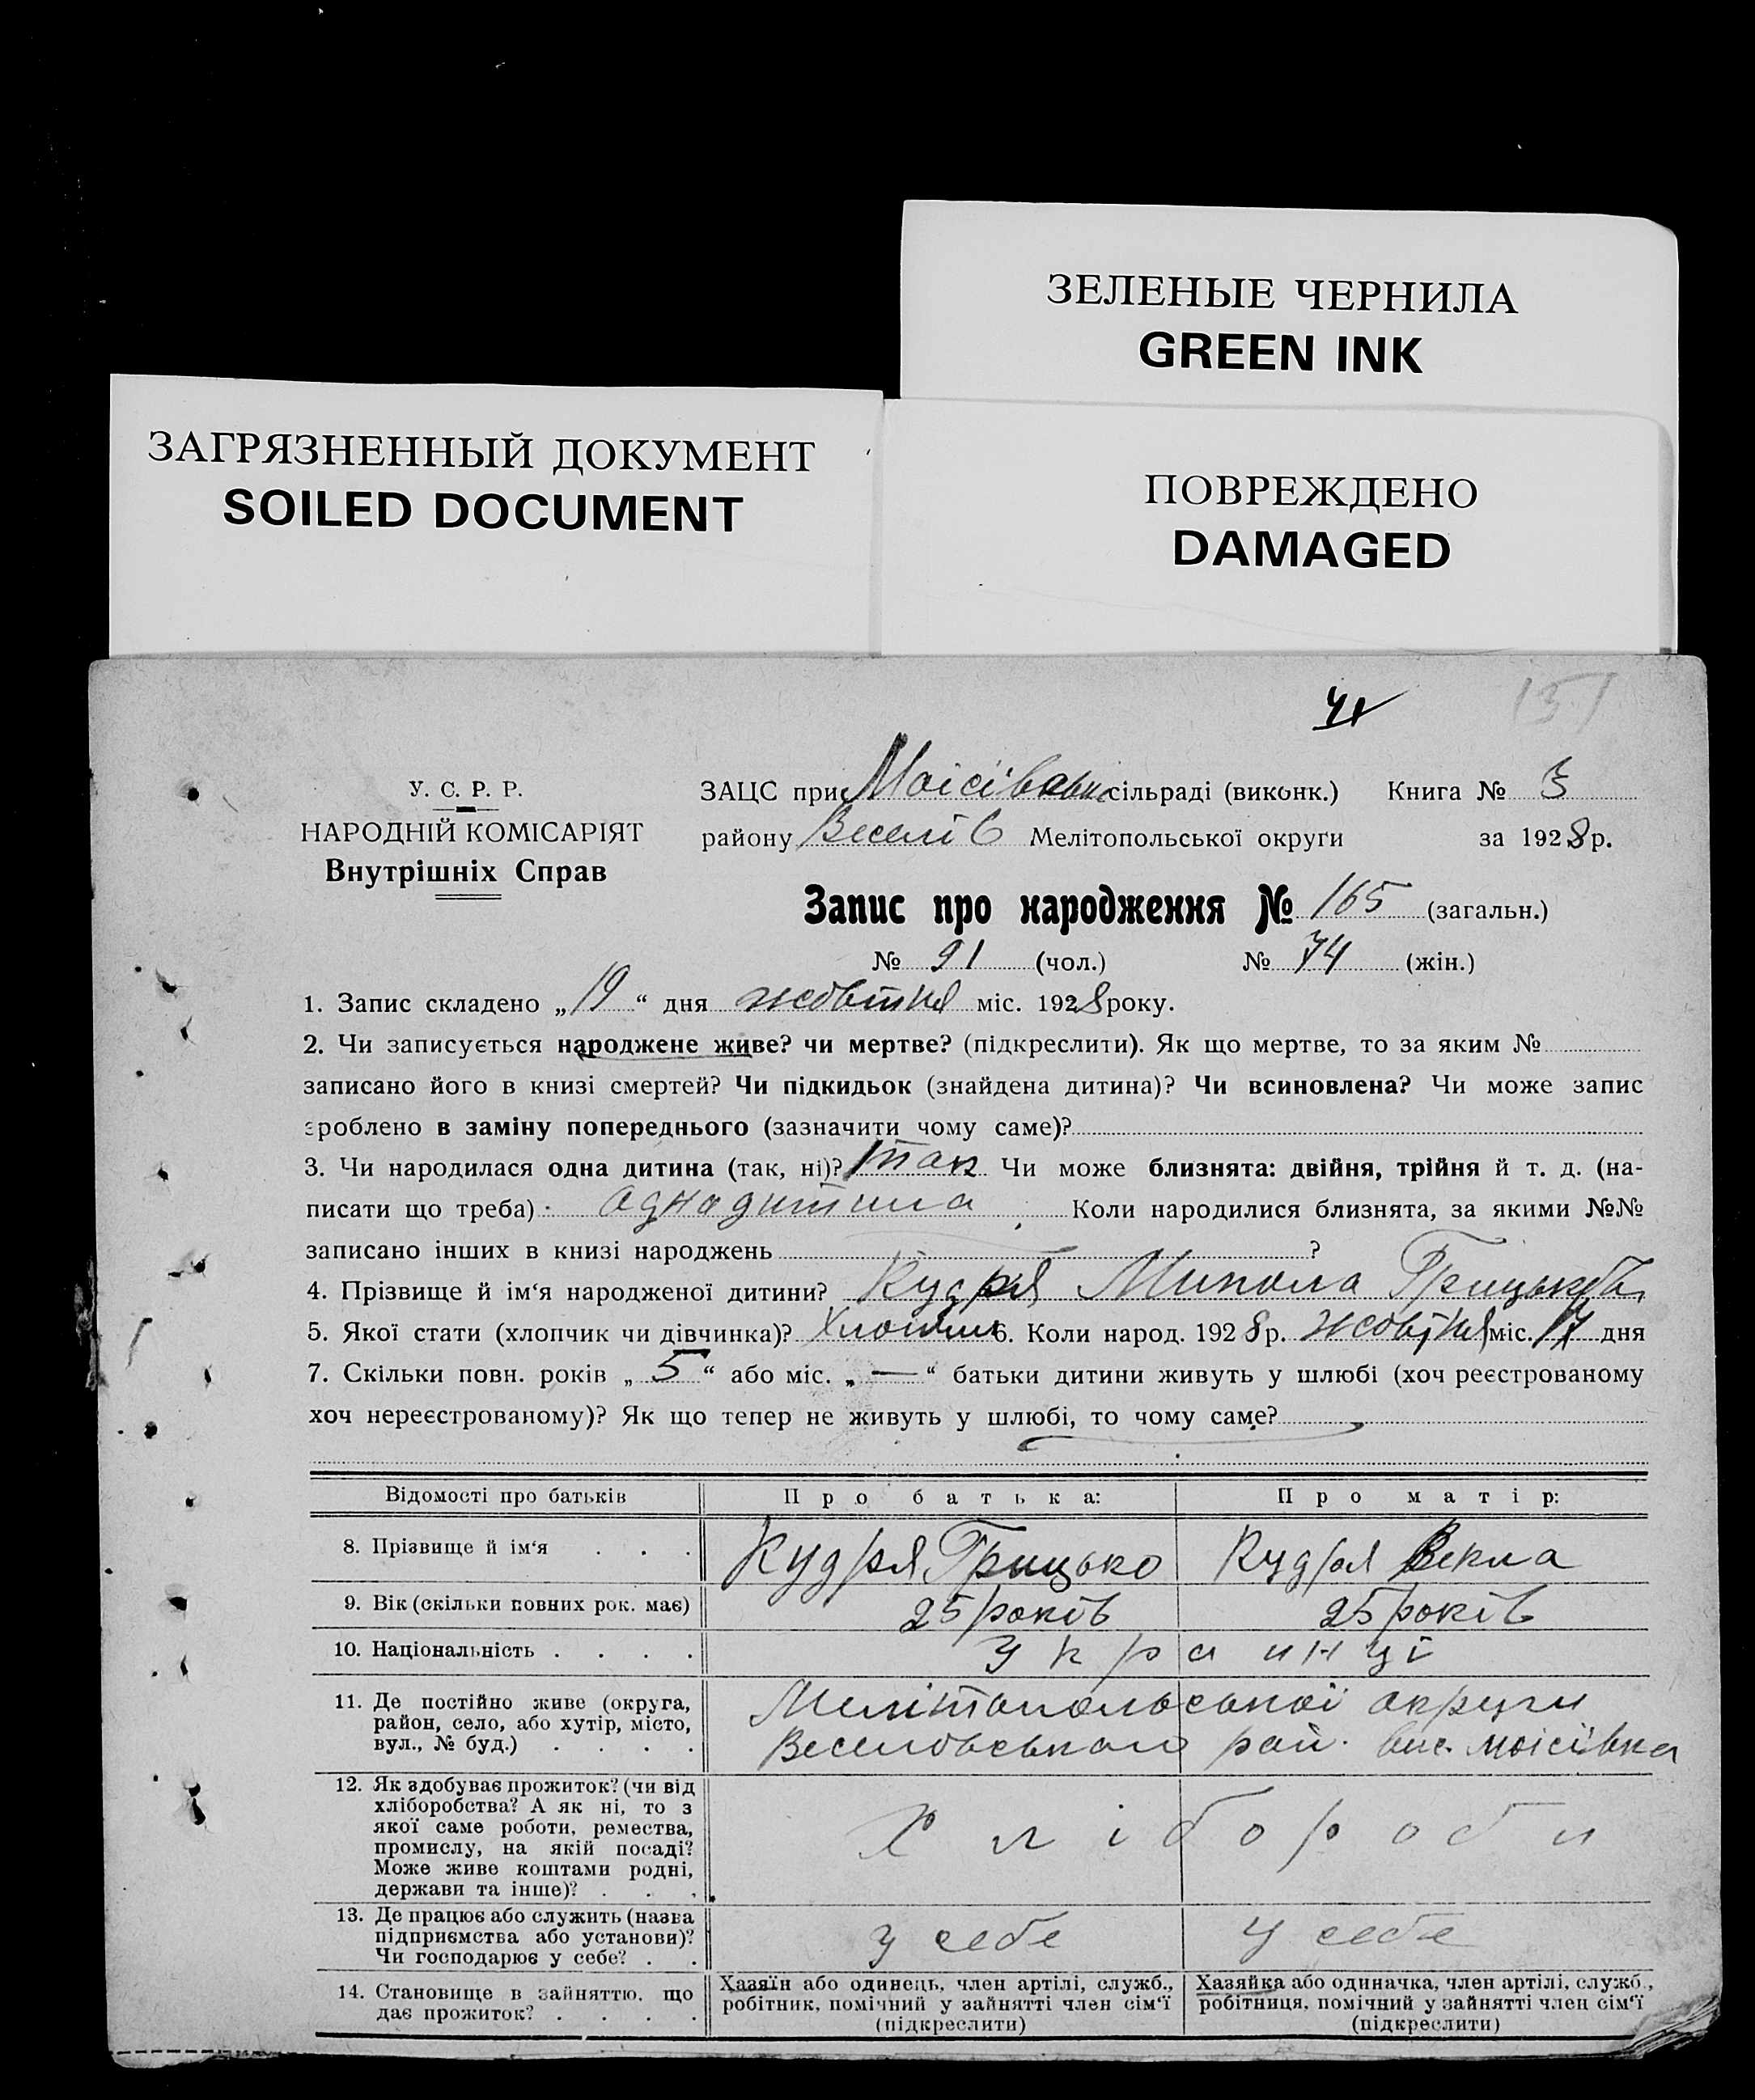 ЗЕЛЕНЫЕ ЧЕРНИЛА
GREEN INK
ЗАГРЯЗНЕННЫЙ ДОКУМЕНТ
SOILED DOCUMENT
ПОВРЕЖДЕНО
DAMAGED
151
У. С. Р. Р.
НАРОДНІЙ КОМІСАРІЯТ
Внутрішніх Справ
ЗАЦС при Моісіївськ сільраді (виконк.) Книга № 3
району Веселів Мелітопольської округи за 1928 р.
Запис про народження № 165 (загальн.)
№ 91 (чол.) № 74 (жін.)
1. Запис складено „19“ дня жовтня міс. 1928 року.
2. Чи записується народжене живе? чи мертве? (підкреслити). Як що мертве, то за яким №
записано його в книзі смертей? Чи підкидьок (знайдена дитина)? Чи всиновлена? Чи може запис
зроблено в заміну попереднього (зазначити чому саме)?
3. Чи народилася одна дитина (так, ні)? так Чи може близнята: двійня, трійня й т. д. (на-
писати що треба) однадитина Коли народилися близнята, за якими №№
записано інших в книзі народжень ?
4. Прізвище й ім‘я народженої дитини? Кудря Микола Грицьков.
5. Якої стати (хлопчик чи дівчинка)? Хлопчик 6. Коли народ. 1928 р. жовтня міс. 17 дня
7. Скільки повн. років „5“ або міс. „—“ батьки дитини живуть у шлюбі (хоч реєстрованому
хоч нереєстрованому)? Як що тепер не живуть у шлюбі, то чому саме?
Відомості про батьків Про батька: Про матір:
8. Прізвище й ім‘я . . . Кудря Грицько Кудря Векла
9. Вік (скільки повних рок. має) 25 років 25 років
10. Національність . . . . Украинці
11. Де постійно живе (округа, Мелітопольської округи
район, село, або хутір, місто, Веселовського рай. вис. Моісіївка
вул., № буд.) . . . .
12. Як здобуває прожиток? (чи від
хліборобства? А як ні, то з
якої саме роботи, ремества, Хлібороби
промислу, на якій посаді?
Може живе коштами родні,
держави та інше)? . . .
13. Де працює або служить (назва
підприємства або установи)? У себе У себе
Чи господарює у себе? . .
14. Становище в зайняттю, що
дає прожиток? . . . .
Хазяїн або одинець, член артілі, служб.,
робітник, помічний у зайнятті член сім‘ї
(підкреслити)
Хазяйка або одиначка, член артілі, служб.,
робітниця, помічний у зайнятті член сім‘ї
(підкреслити)